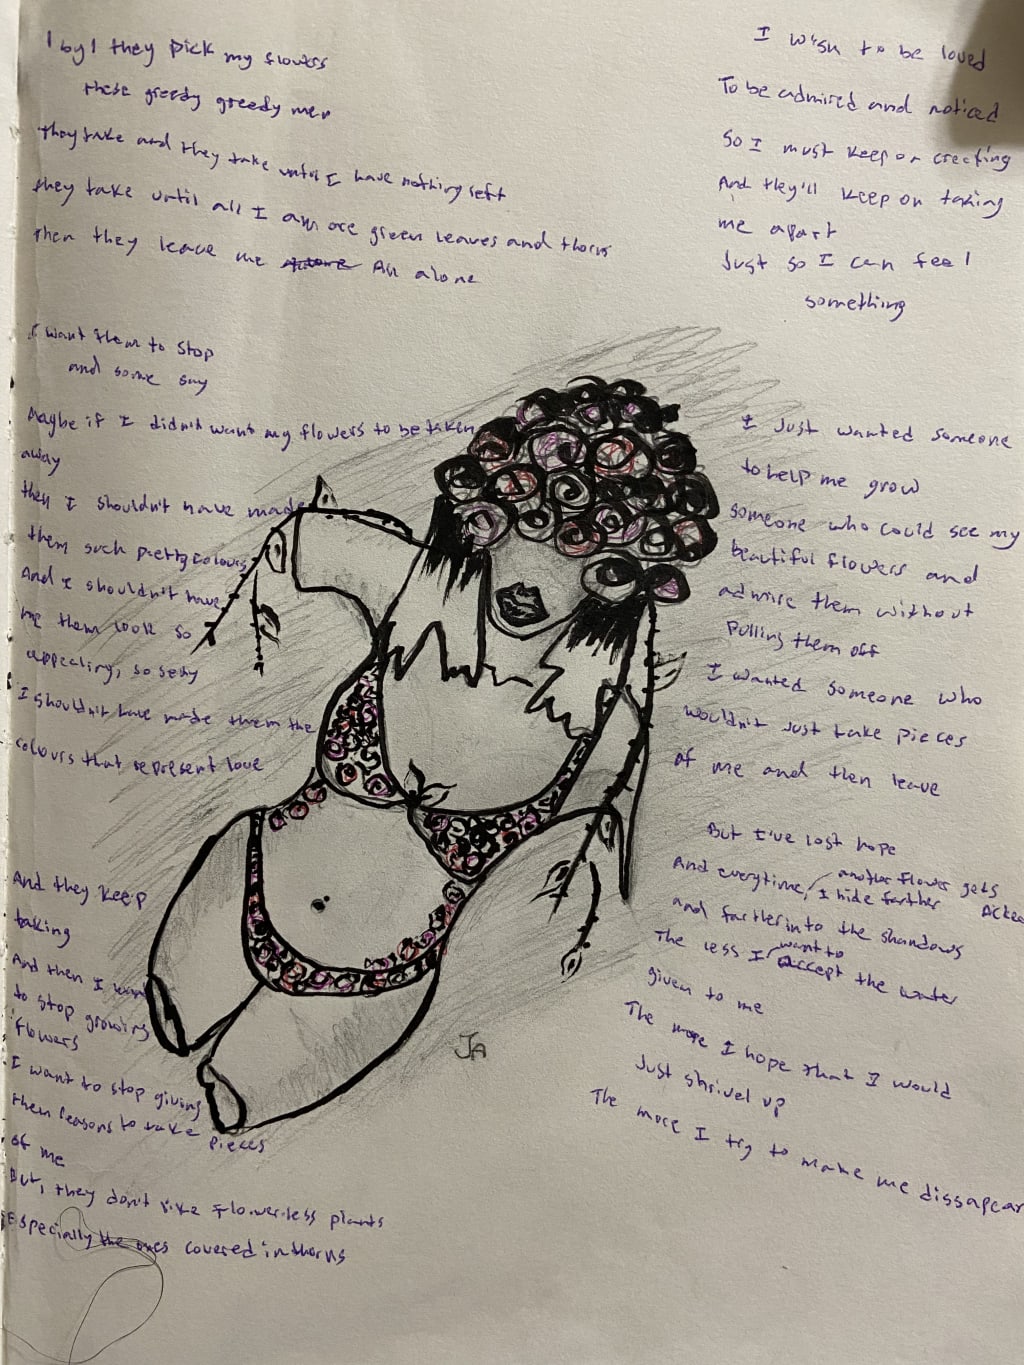 1 by 1 they pick my flowers
these greedy greedy men
they take and they take until I have nothing left
they take until all I am are green leaves and thorns
then they leave me All alone
I want them to stop
and some say
Maybe if I didn't want my flowers to be taken
away
then I shouldn't have made
them such pretty colours
And I shouldn't have
me them look so
appealing, so sexy
I shouldn't have made them the
colours that represent love
And they keep
taking
And then I want
to stop growing
flowers
I want to stop giving
them reasons to take pieces
of me
But, they don't like flowerless plants
Especially the ones covered in thorns
I wish to be loved
To be admired and noticed
So I must keep on creating
And they'll keep on taking
me apart
Just so I can feel
something
I Just wanted someone
to help me grow
someone who could see my
beautiful flowers and
admire them without
pulling them off
I wanted someone who
wouldn't just take pieces
of me and then leave
But I've lost hope
And everytime, another flower gets
I hide farther
and farther into the shandows
The less I want to accept the water
given to me
The more I hope that I would
Just shrivel up
The more I try to make me dissapear
JA